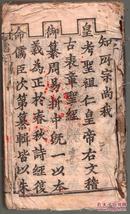 知所宗尚我
皇考聖祖仁皇帝右文稽
古表章聖經
御纂周易折中既一以本
義為正於春秋詩經復
命儒臣次第纂輯皆以朱